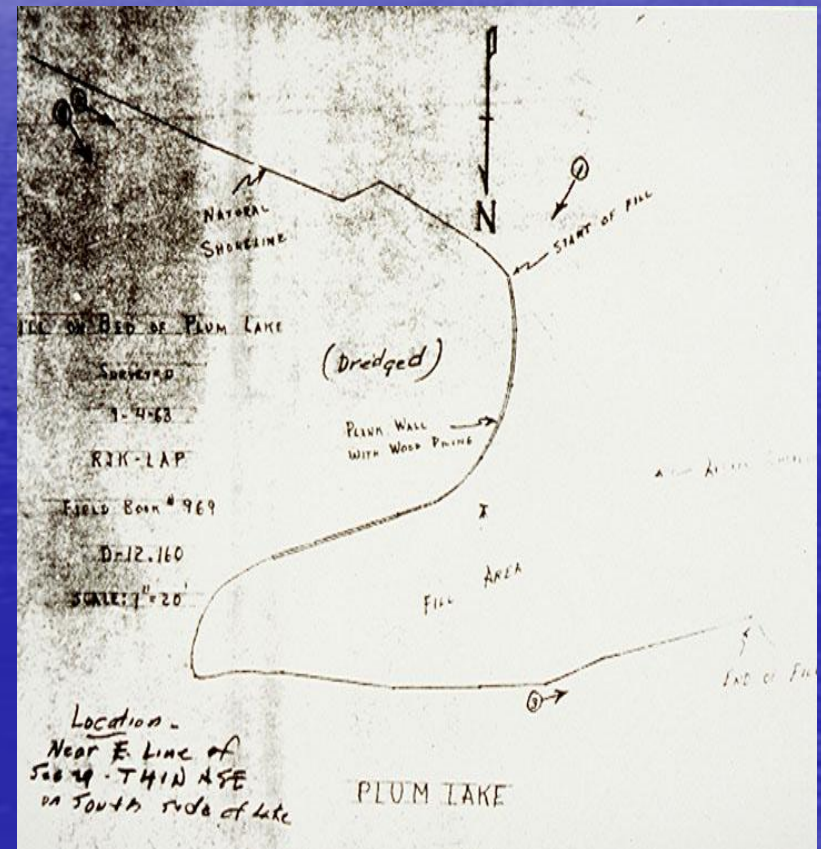 N
NATURAL
SHORELINE
START OF FILL
ON BED OF PLUM LAKE
SURVEYED
9-4-63
RJK-LAP
FIELD BOOK # 969
D-12.160
SCALE: 1"=20'
(Dredged)
PLANK WALL
WITH WOOD PILING
FILL AREA
END OF
3
Location -
Near E. Line of
on South side of Lake
PLUM LAKE